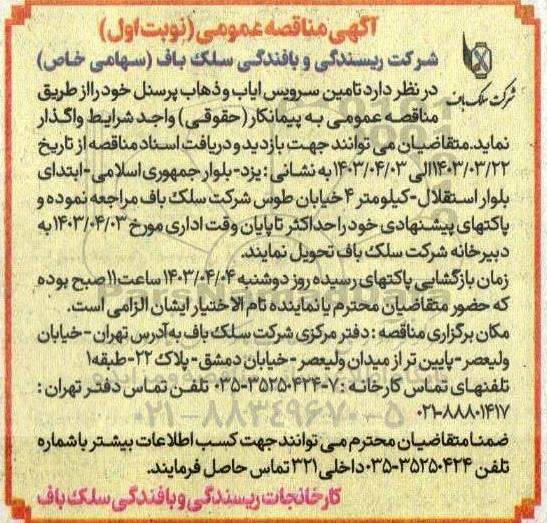 آگهی مناقصه عمومی (نوبت اول)
شرکت ریسندگی و بافندگی سلک باف (سهامی خاص)
شرکت سلک باف
در نظر دارد تامین سرویس ایاب و ذهاب پرسنل خود را از طریق
مناقصه عمومی به پیمانکار (حقوقی) واجد شرایط واگذار
نماید. متقاضیان می توانند جهت بازدید و دریافت اسناد مناقصه از تاریخ
۱۴۰۳/۰۳/۲۲ الی ۱۴۰۳/۰۴/۰۳ به نشانی: یزد- بلوار جمهوری اسلامی- ابتدای
بلوار استقلال- کیلومتر ۴ خیابان طوس شرکت سلک باف مراجعه نموده و
پاکتهای پیشنهادی خود را حداکثر تا پایان وقت اداری مورخ ۱۴۰۳/۰۴/۰۳ به
دبیرخانه شرکت سلک باف تحویل نمایند.
زمان بازگشایی پاکتهای رسیده روز دوشنبه ۱۴۰۳/۰۴/۰۴ ساعت ۱۱ صبح بوده
که حضور متقاضیان محترم یا نماینده تام الاختیار ایشان الزامی است.
مکان برگزاری مناقصه: دفتر مرکزی شرکت سلک باف به آدرس تهران- خیابان
ولیعصر- پایین تر از میدان ولیعصر- خیابان دمشق- پلاک ۲۲- طبقه ۱
تلفنهای تماس کارخانه: ۷-۳۵۲۵۰۴۲۴-۰۳۵ تلفن تماس دفتر تهران:
۰۲۱-۸۸۸۰۱۴۱۷
۰۲۱-۸۸۳۴۹۶۷۰-۵
ضمنا متقاضیان محترم می توانند جهت کسب اطلاعات بیشتر با شماره
تلفن ۳۵۲۵۰۴۲۴-۰۳۵ داخلی ۳۲۱ تماس حاصل فرمایند.
کارخانجات ریسندگی و بافندگی سلک باف